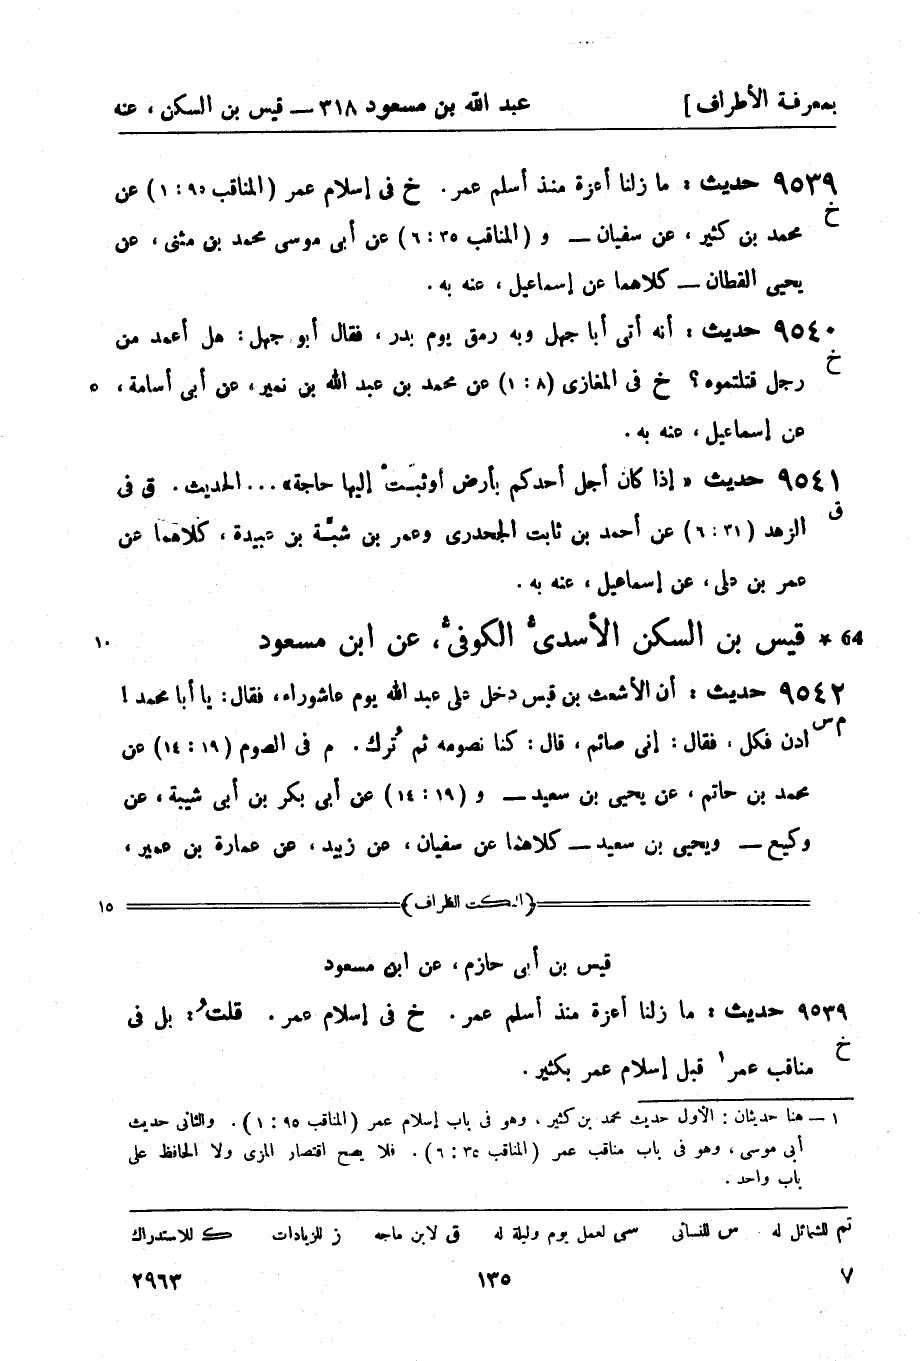 بمعرفة الأطراف] عبد الله بن مسعود ٣١٨ — قيس بن السكن ، عنه
٩٥٣٩ حديث : ما زلنا أعزة منذ أسلم عمر. خ فى إسلام عمر (المناقب ٩٥ : ١) عن
خ
محمد بن كثير ، عن سفيان — و (المناقب ٣٥ : ٦) عن أبى موسى محمد بن مثنى ، عن
يحيى القطان — كلاهما عن إسماعيل ، عنه به .
٩٥٤٠ حديث : أنه أتى أبا جهل وبه رمق يوم بدر ، فقال أبو جهل : هل أعمد من
خ
رجل قتلتموه ؟ خ فى المغازى (٨ : ١) عن محمد بن عبد الله بن نمير، عن أبى أسامة ، ٥
عن إسماعيل ، عنه به .
٩٥٤١ حديث « إذا كان أجل أحدكم بأرض أوثبَتْ إليها حاجة» ... الحديث . ق فى
ق
الزهد (٣١ : ٦) عن أحمد بن ثابت الجحدرى وعمر بن شبَّة بن عبيدة ، كلاهما عن
عمر بن على ، عن إسماعيل ، عنه به .
64 * قيس بن السكن الأسدىُّ الكوفىُّ، عن ابن مسعود ١٠
٩٥٤٢ حديث : أن الأشعث بن قيس دخل على عبد الله يوم عاشوراء، فقال: يا أبا محمد !
م س
ادن فكل ، فقال : إنى صائم ، قال : كنا نصومه ثم تُرك . م فى الصوم (١٩ : ١٤) عن
محمد بن حاتم ، عن يحيى بن سعيد — و (١٩ : ١٤) عن أبى بكر بن أبى شيبة ، عن
وكيع — ويحيى بن سعيد — كلاهما عن سفيان ، عن زبيد ، عن عمارة بن عمير ،
(النكت الظراف) ١٥
قيس بن أبى حازم ، عن ابن مسعود
٩٥٣٩ حديث : ما زلنا أعزة منذ أسلم عمر . خ فى إسلام عمر . قلتُ : بل فى
خ
مناقب عمر ١ قبل إسلام عمر بكثير .
١ — هنا حديثان : الأول حديث محمد بن كثير ، وهو فى باب إسلام عمر (المناقب ٩٥ : ١) . والثانى حديث
أبى موسى ، وهو فى باب مناقب عمر (المناقب ٣٥ : ٦) . فلا يصح اقتصار المزى ولا الحافظ على
باب واحد .
تم للشمائل له س للنسائى سى لعمل يوم وليلة له ق لابن ماجه ز للزيادات ك للاستدراك
٧ ١٣٥ ٢٩٦٣